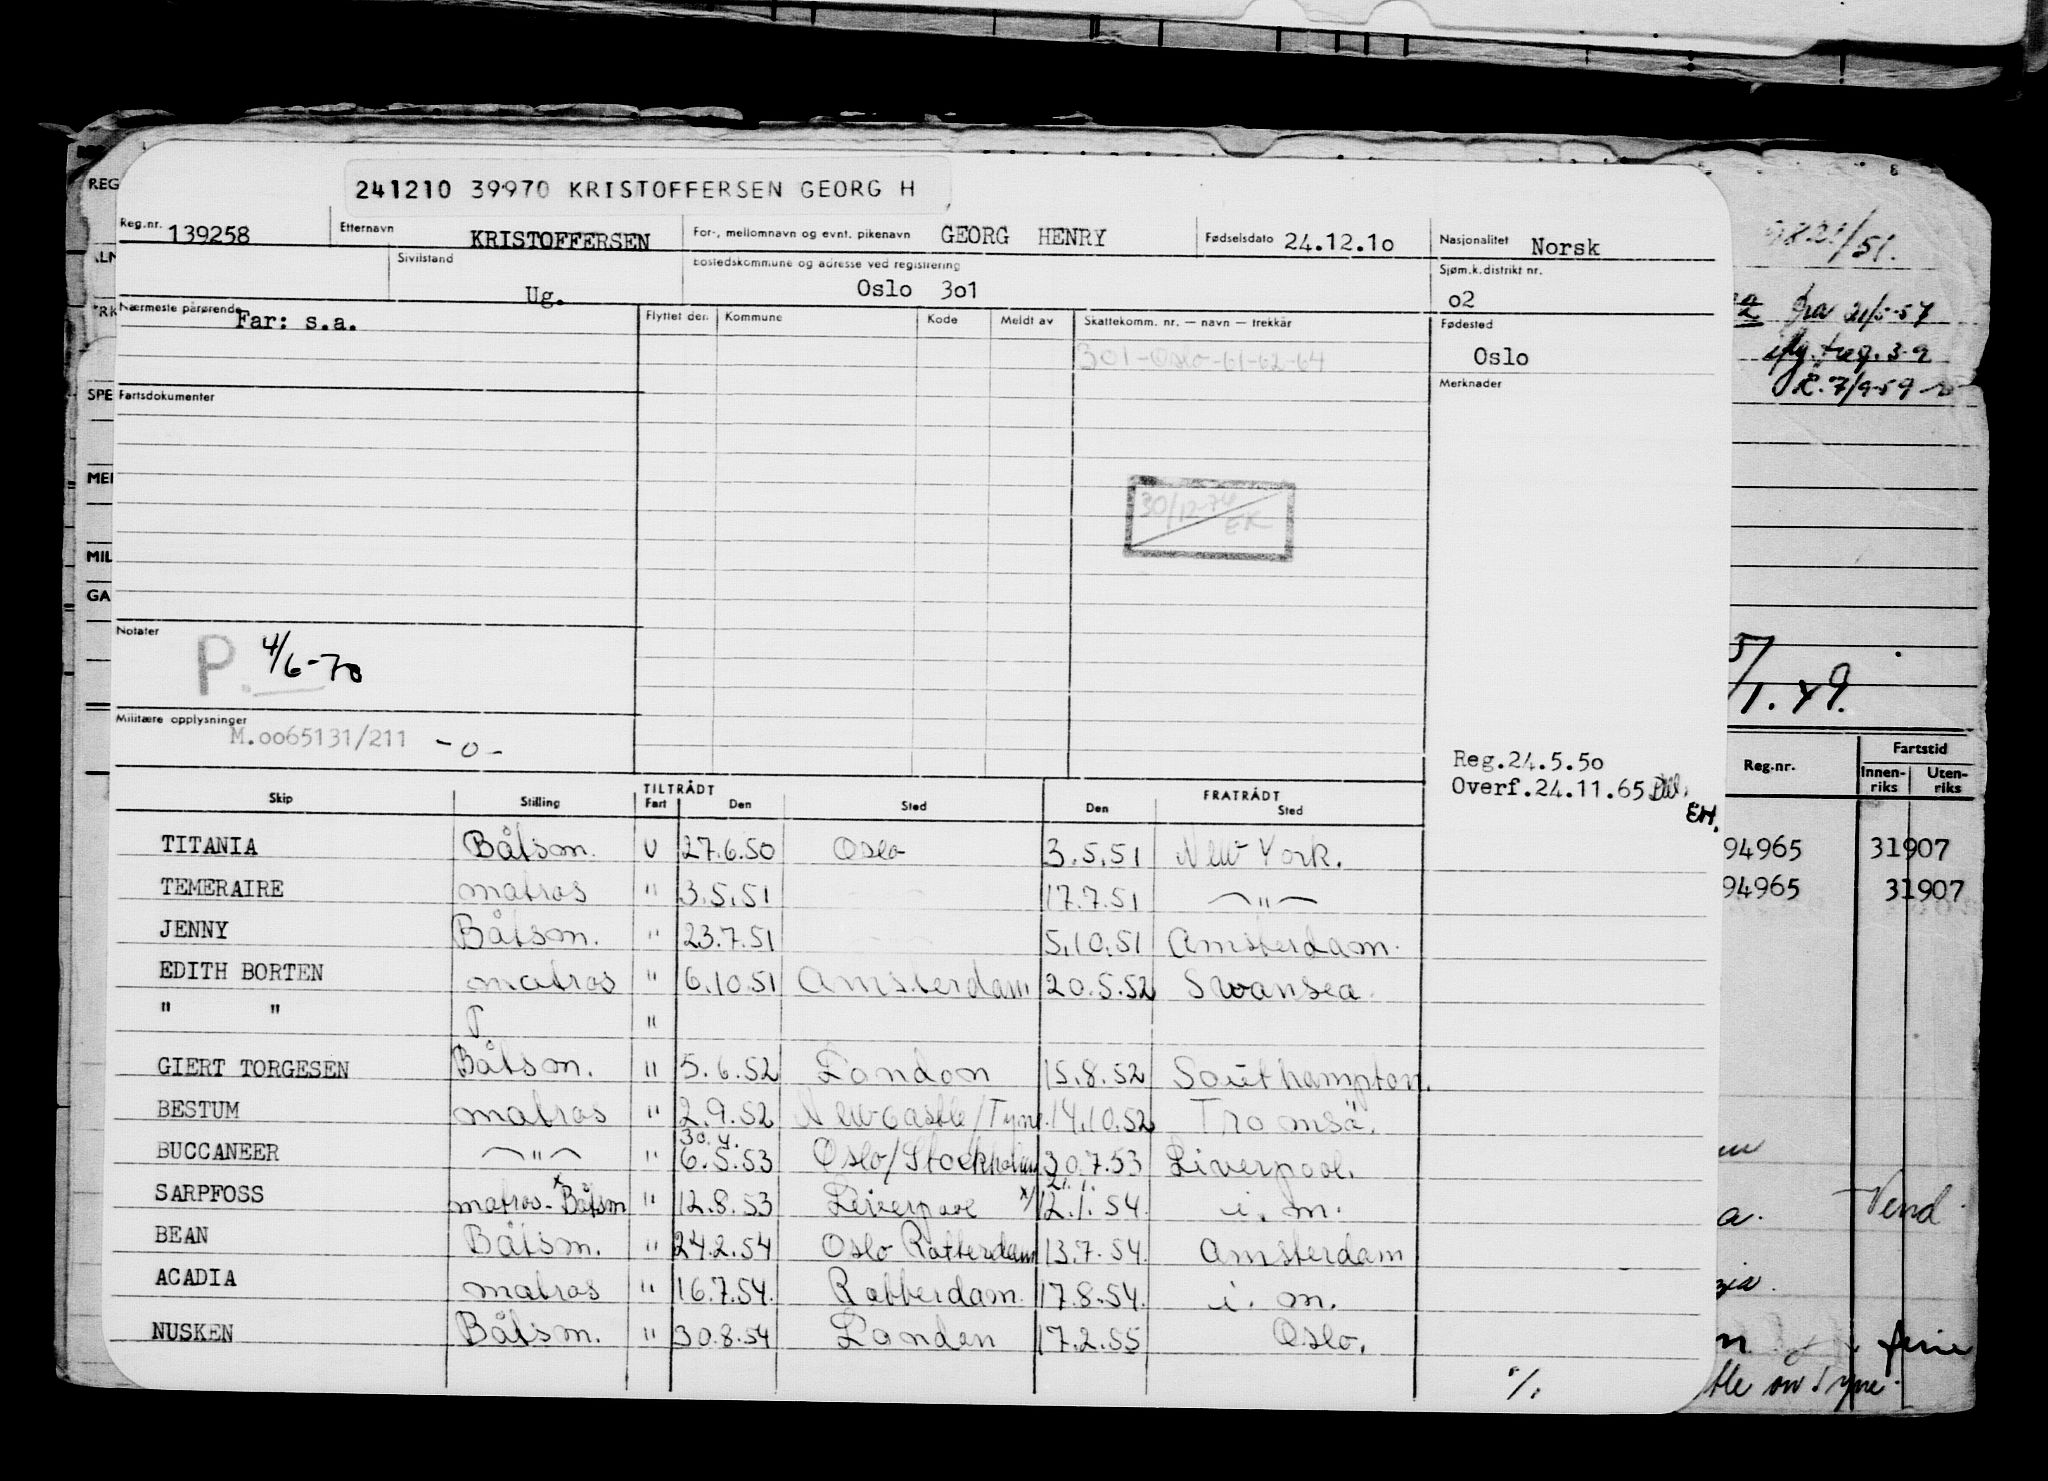 241210 39970 KRISTOFFERSEN GEORG H
Reg.nr. 139258 Etternavn KRISTOFFERSEN For-, mellomnavn og evnt. pikenavn GEORG HENRY Fødselsdato 24.12.1o Nasjonalitet Norsk
Sivilstand Ug. Bostedskommune og adresse ved registrering Oslo 3o1 Sjøm.k.distrikt nr. o2
Nærmeste pårørende Far: s.a. Flyttet den Kommune Kode Meldt av Skattekomm. nr. — navn — trekkår Fødested Oslo
301-Oslo-61-62-64
Merknader
Fartsdokumenter
30/12-74 EK
Notater
P. 4/6-70
Militære opplysninger
M.oo65131/211 -0-
Reg.24.5.5o
Overf.24.11.65
EH.
Skip Stilling TILTRÅDT Fart Den Sted FRATRÅDT Den Sted
TITANIA Båtsm. U 27.6.50 Oslo 3.5.51 New York.
TEMERAIRE matros " 3.5.51 17.7.51 — " —
JENNY Båtsm. " 23.7.51 5.10.51 Amsterdam.
EDITH BORTEN matros " 6.10.51 Amsterdam 20.5.52 Swansea.
" " "
GIERT TORGESEN Båtsm. " 5.6.52 London 15.8.52 Southampton.
BESTUM matros " 2.9.52 Newcastle/Tyne. 14.10.52 Tromsö.
30.4.
BUCCANEER — " — " 6.5.53 Oslo/Stockholm 30.7.53 Liverpool.
21.1.
SARPFOSS matros - x Båtsm " 12.8.53 Liverpool x/ 12.1.54. i. m.
BEAN Båtsm. " 24.2.54 Oslo Rotterdam 13.7.54. Amsterdam
ACADIA matros " 16.7.54. Rotterdam. 17.8.54. i. m.
NUSKEN Båtsm. " 30.8.54 London 17.2.55 Oslo.
%.
REG
SPE
MIL
GA
fra 21/5-57
7/9-59
1.49.
Reg.nr. Fartstid
Innen-riks Uten-riks
94965 31907
94965 31907
Vend
on Tyne.